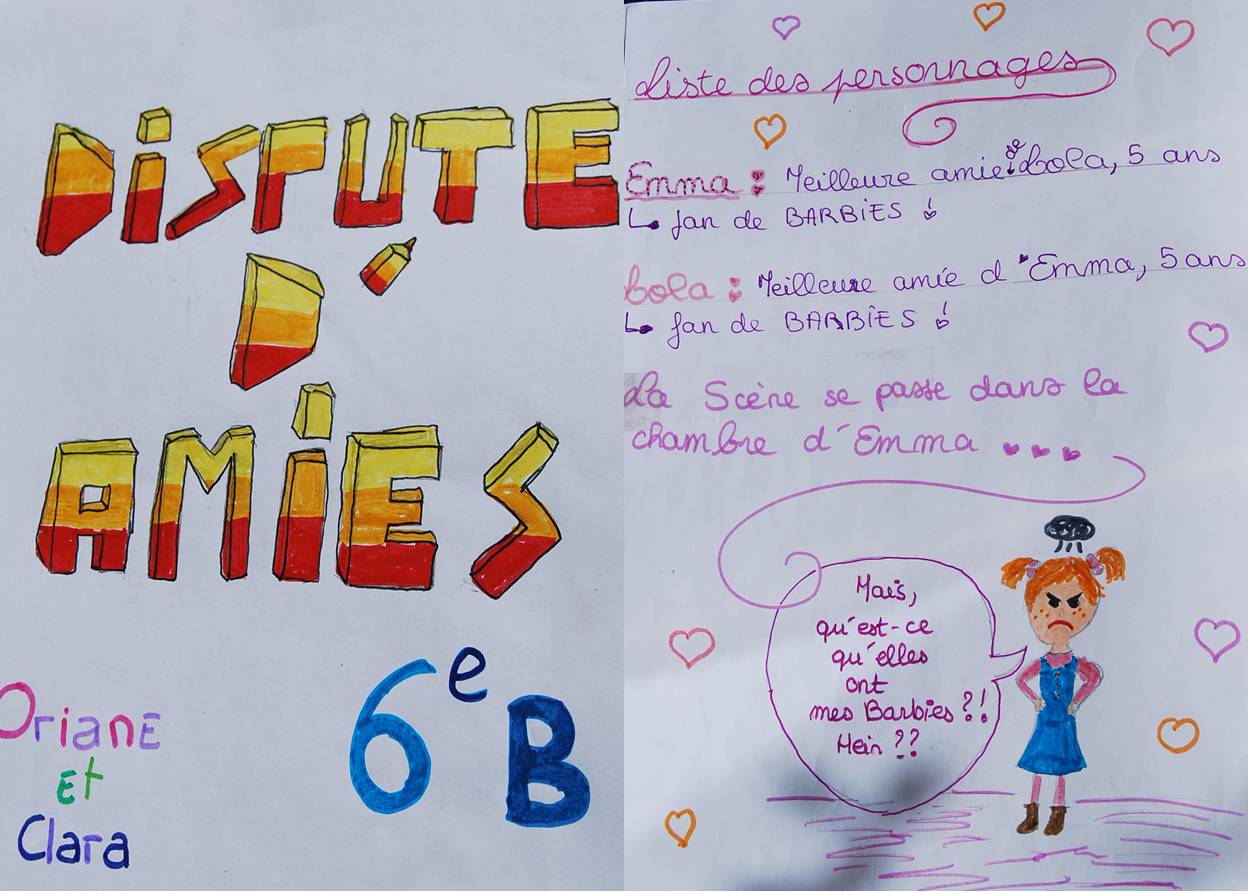 DiSPUTE
D'
AMiES
6e B
OrianE
Et
Clara
Liste des personnages
Emma : Meilleure amie de Lola, 5 ans
↳ fan de BARBIES !
Lola : Meilleure amie d'Emma, 5 ans
↳ fan de BARBIES !
La Scène se passe dans la
chambre d'Emma ...
Mais,
qu'est-ce
qu'elles
ont
mes Barbies ?!
Hein ??